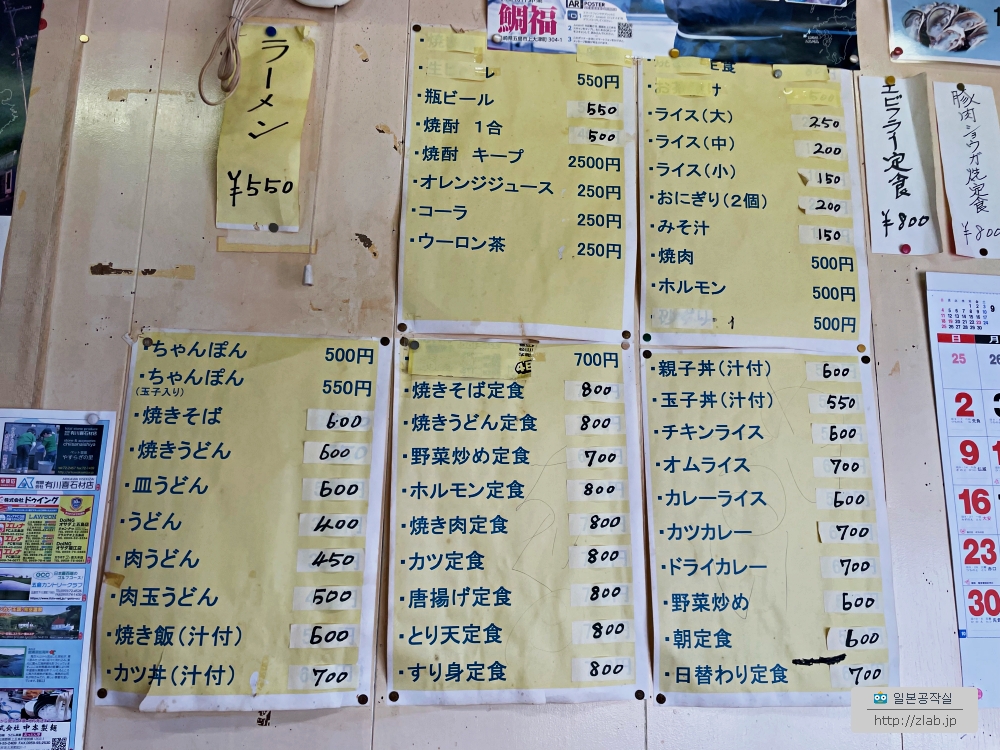 ラーメン
¥550
鯛福
AR POSTER
550円
・瓶ビール 550
・焼酎 1合 500
・焼酎 キープ 2500円
・オレンジジュース 250円
・コーラ 250円
・ウーロン茶 250円
定食
・ライス(大) 250
・ライス(中) 200
・ライス(小) 150
・おにぎり(2個) 200
・みそ汁 150
・焼肉 500円
・ホルモン 500円
500円
エビフライ定食
¥800
豚肉ショウガ焼定食
¥800
・ちゃんぽん 500円
・ちゃんぽん 550円
(玉子入り)
・焼きそば 600
・焼きうどん 600
・皿うどん 600
・うどん 400
・肉うどん 450
・肉玉うどん 500
・焼き飯(汁付) 600
・カツ丼(汁付) 700
700円
・焼きそば定食 800
・焼きうどん定食 800
・野菜炒め定食 700
・ホルモン定食 800
・焼き肉定食 800
・カツ定食 800
・唐揚げ定食 800
・とり天定食 800
・すり身定食 800
・親子丼(汁付) 600
・玉子丼(汁付) 550
・チキンライス 600
・オムライス 700
・カレーライス 600
・カツカレー 700
・ドライカレー 700
・野菜炒め 600
・朝定食 600
・日替わり定食 700
9
日 月
25 26
2
9
16
23
30
有川喜石材店
株式会社 ドゥイング
LAWSON
五島カントリークラブ
株式会社 中本製麺
일본공작실
http://zlab.jp